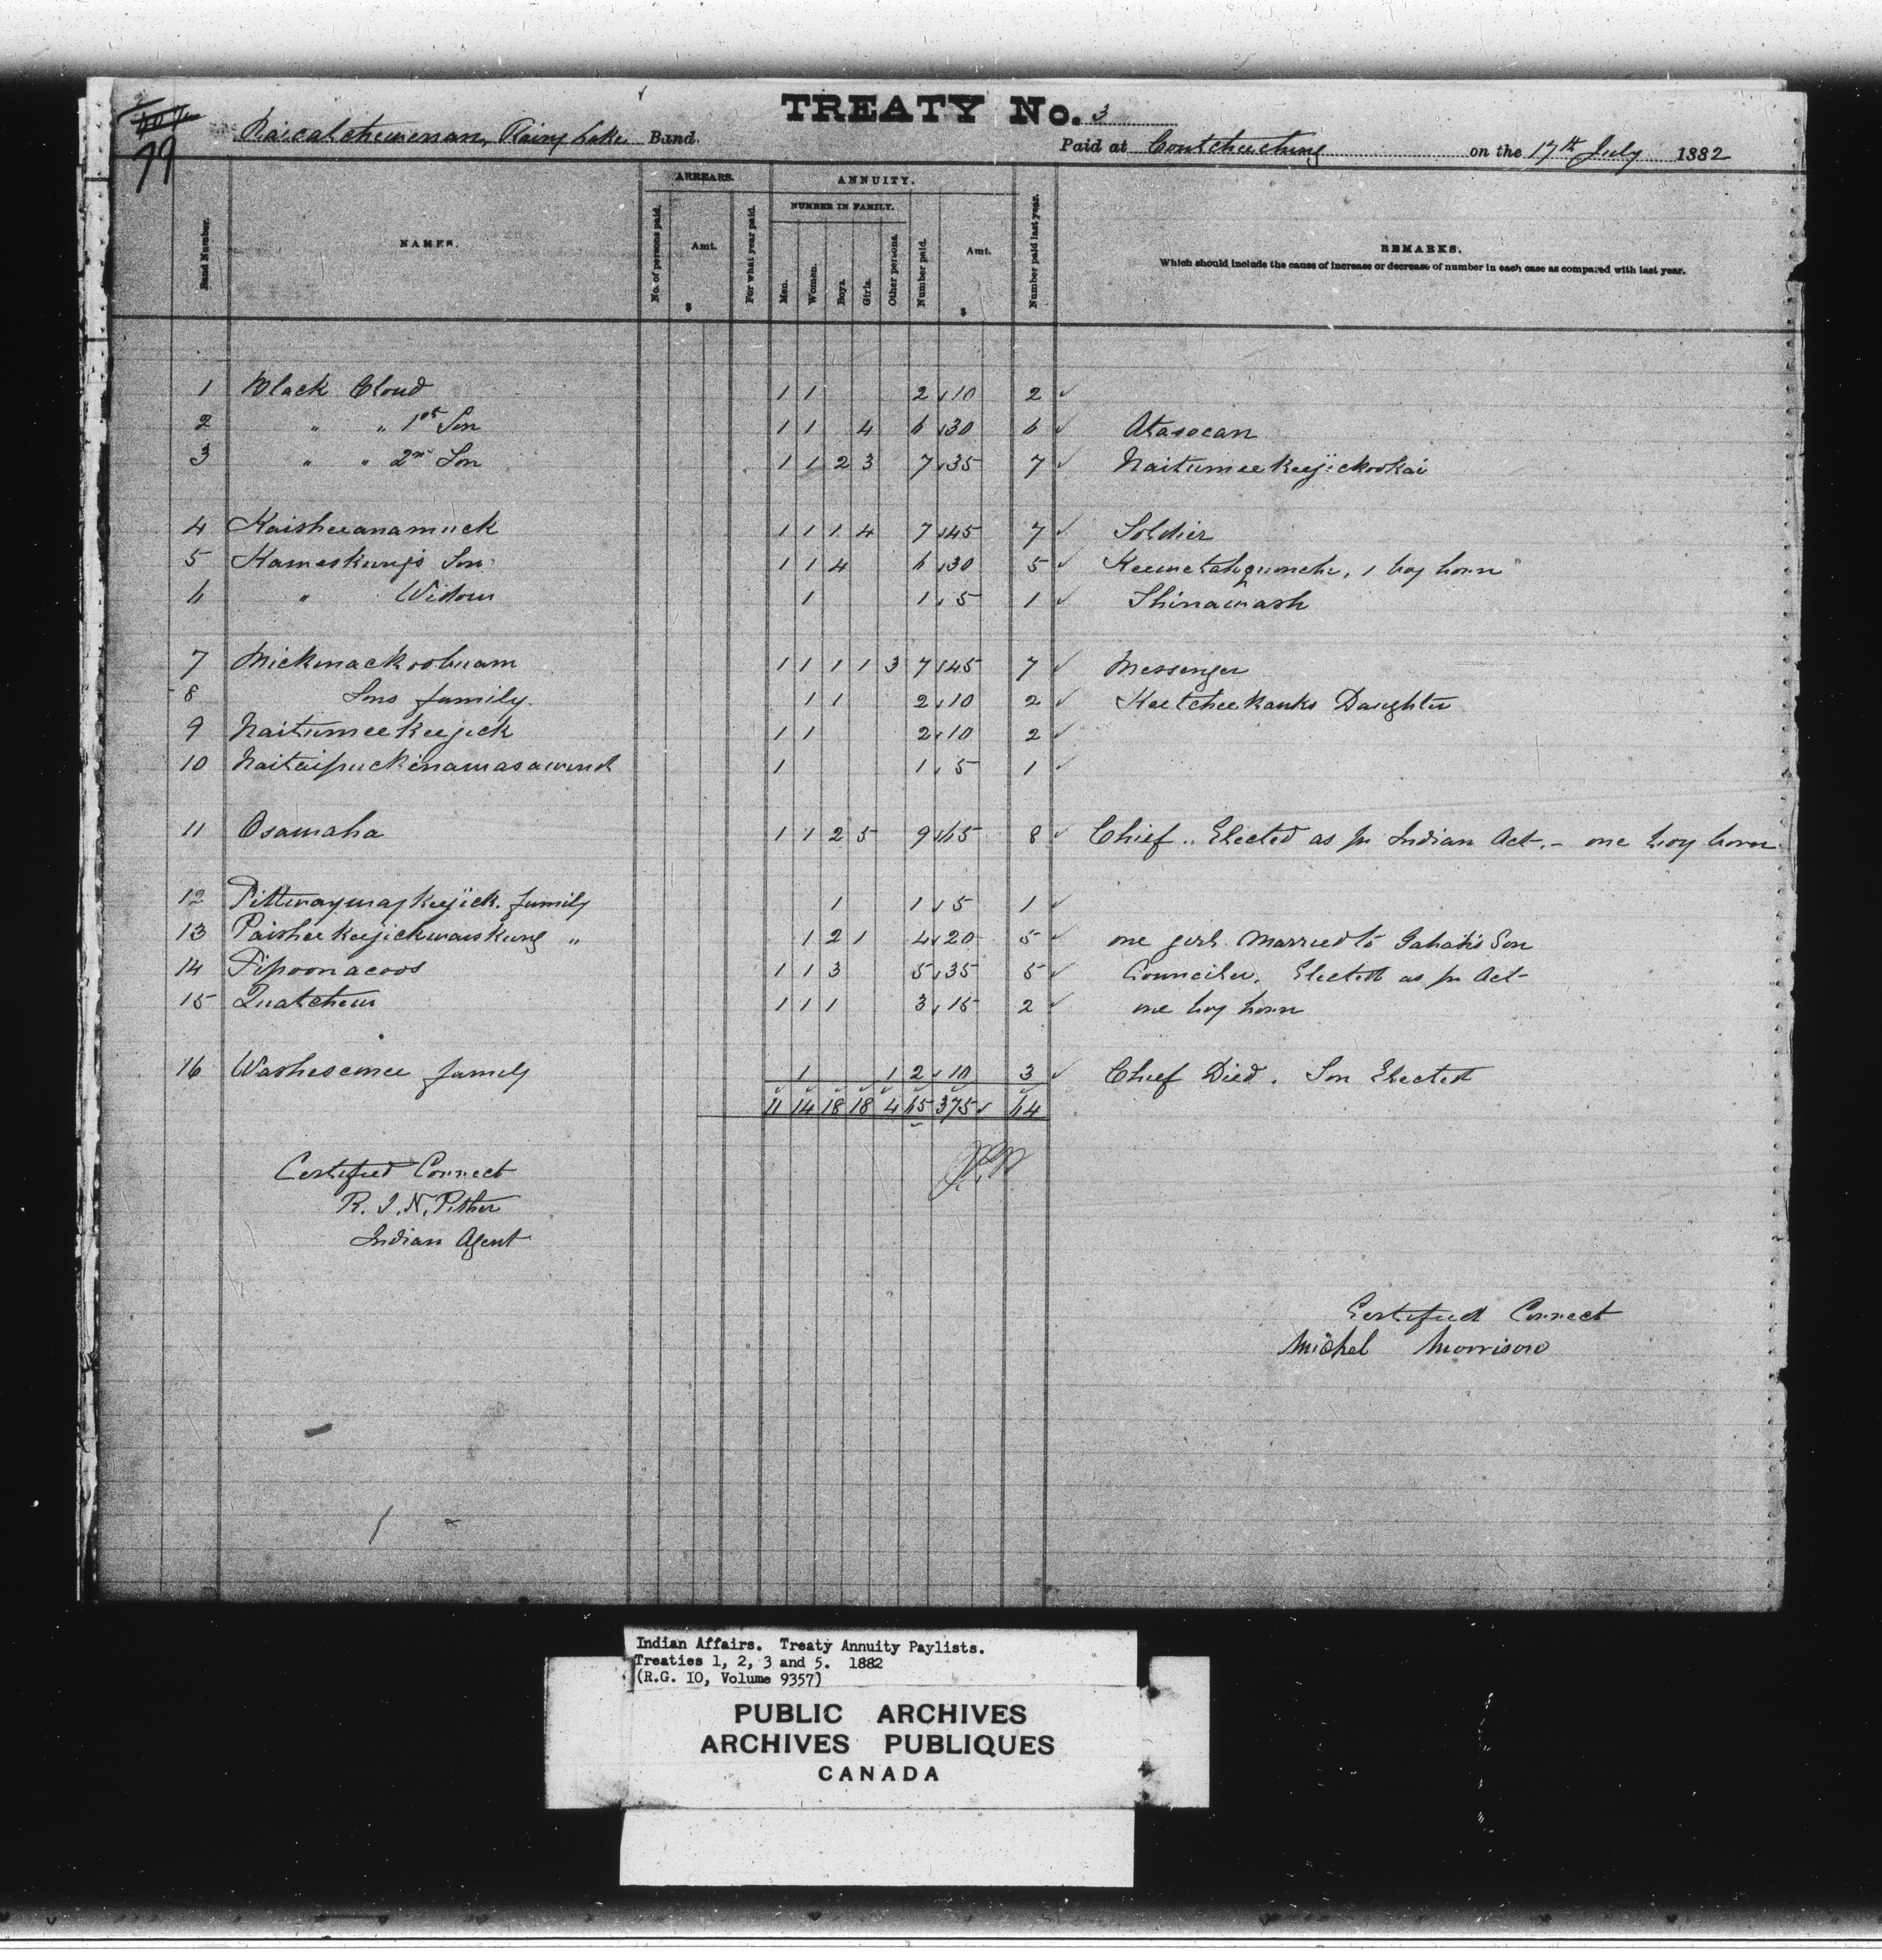 TREATY No. 3
79
Rainy Lake Band.
Paid at Coutcheeching on the 17th July 1882
ARREARS.
ANNUITY.
NUMBER IN FAMILY.
Band Number.
NAMES.
No. of persons paid.
Amt.
$
For what year paid.
Men.
Women.
Boys.
Girls.
Other persons.
Number paid.
Amt.
$
Number paid last year.
REMARKS.
Which should include the cause of increase or decrease of number in each case as compared with last year.
1 Black Cloud 1 1 2 10 2
2 " " 1st Son 1 1 4 6 30 6 Atasocan
3 " " 2nd Son 1 1 2 3 7 35 7 Naitumeekeejickookai
4 Kaisheeanamuck 1 1 1 4 7 45 7 Soldier
5 Kameskung's Son 1 1 4 6 30 5 1 boy born
6 " Widow 1 1 5 1 Shinawash
7 Mickmackoobuam 1 1 1 1 3 7 45 7 Messenger
8 Sons family. 1 1 2 10 2 Keetcheekanks Daughter
9 Naitumeekeejick 1 1 2 10 2
10 Naitaipuckinamasawund 1 1 5 1
11 Osamaha 1 1 2 5 9 65 8 Chief .. Elected as pr Indian Act. - one boy born
12 family 1 1 5 1
13 Paisheekeejickwaiskung " 1 2 1 4 20 5 one girl married to Son
14 Pipoonacoos 1 1 3 5 35 5 Counciler. Elected as pr Act
15 Quatchew 1 1 1 3 15 2 one boy born
16 Washescunce family 1 1 2 10 3 Chief Died. Son Elected
11 14 18 18 4 65 375 64
Certified Correct
R. J. N. Pither
Indian Agent
Certified Correct
Michel Morrison
Indian Affairs. Treaty Annuity Paylists.
Treaties 1, 2, 3 and 5. 1882
(R.G. 10, Volume 9357)
PUBLIC ARCHIVES
ARCHIVES PUBLIQUES
CANADA